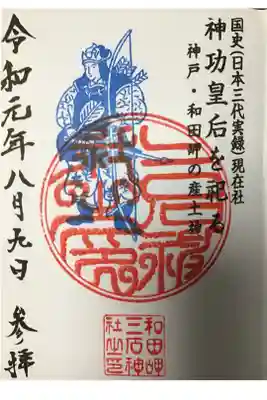 国史(日本三代実録)現在社
神功皇后を祀る
神戸・和田岬の産土神
令和元年八月九日 参拝
和田岬
三石神
社之印